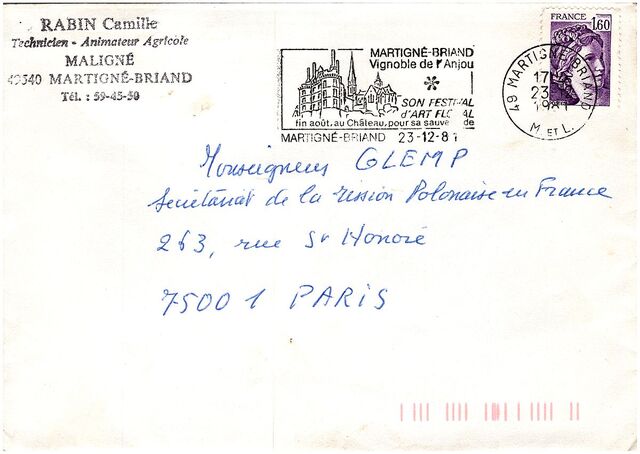 RABIN Camille
Technicien - Animateur Agricole
MALIGNÉ
49540 MARTIGNÉ-BRIAND
Tél. : 59-45-50
MARTIGNÉ-BRIAND
Vignoble de l'Anjou
SON FESTIVAL
D'ART FLORAL
fin août, au Château, pour sa sauve de
MARTIGNÉ-BRIAND 23-12-81
FRANCE
1,60
49 MARTIGNÉ-BRIAND
17
23
1981
M. ET L.
Monseigneur GLEMP
Secrétariat de la Mission Polonaise en France
263, rue St Honoré
75001 PARIS